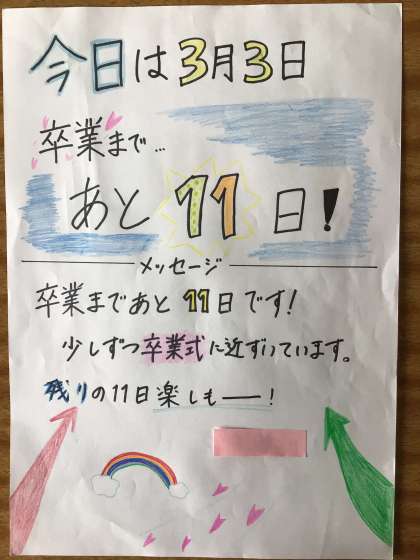 今日は3月3日
卒業まで…
あと11日!
メッセージ
卒業まであと11日です!
少しずつ卒業式に近ずいています。
残りの11日楽しもー!